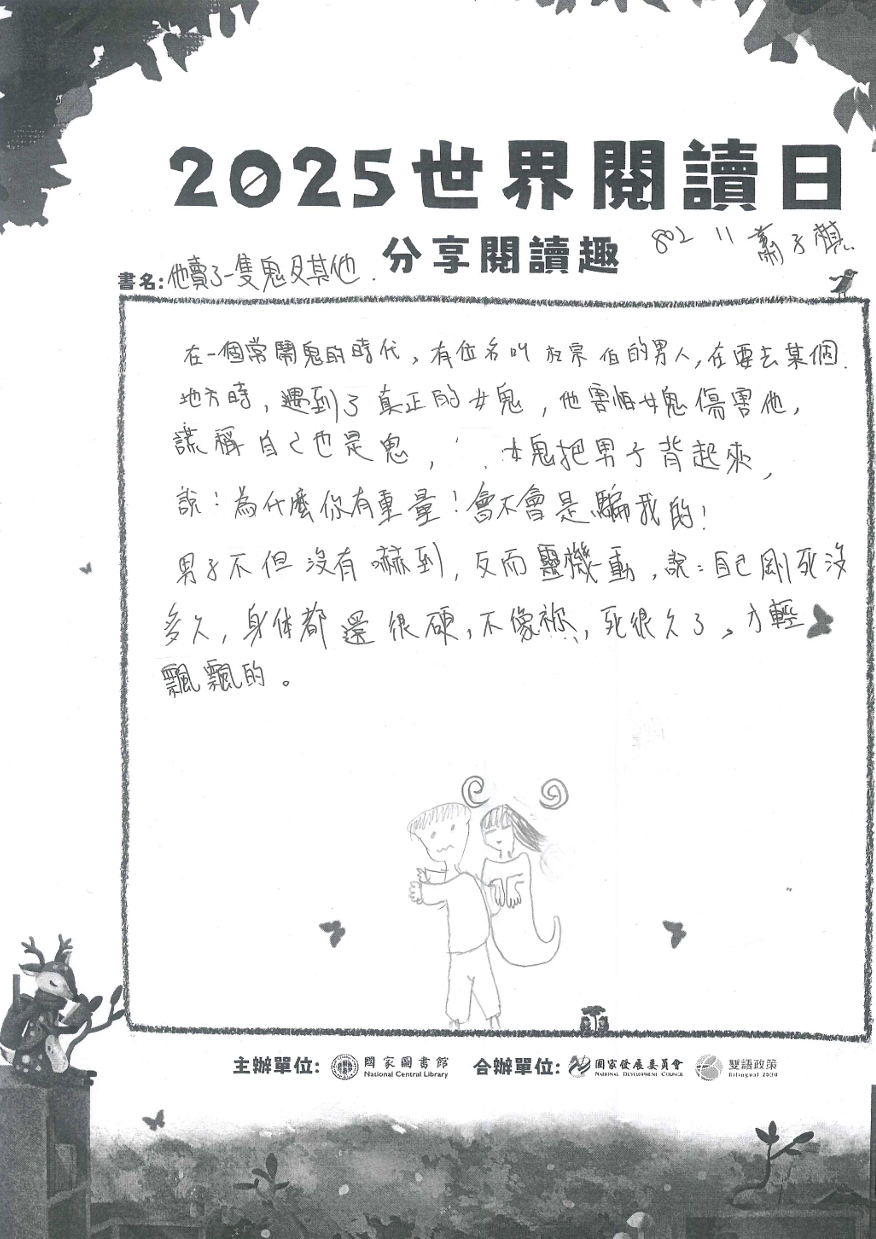 2025世界閱讀日
分享閱讀趣
802 11 蕭子
書名:他賣了一隻鬼及其他.
在一個常鬧鬼的時代,有位名叫 宗伯的男人,在要去某個
地方時,遇到了真正的女鬼,他害怕女鬼傷害他,
謊稱自己也是鬼,女鬼把男子背起來,
說:為什麼你有重量!會不會是騙我的!
男子不但沒有嚇到,反而靈機一動,說:自己剛死沒
多久,身体都還很硬,不像祢,死很久了,才輕
飄飄的。
主辦單位: 國家圖書館 National Central Library 合辦單位: 國家發展委員會 National Development Council 雙語政策 Bilingual 2030